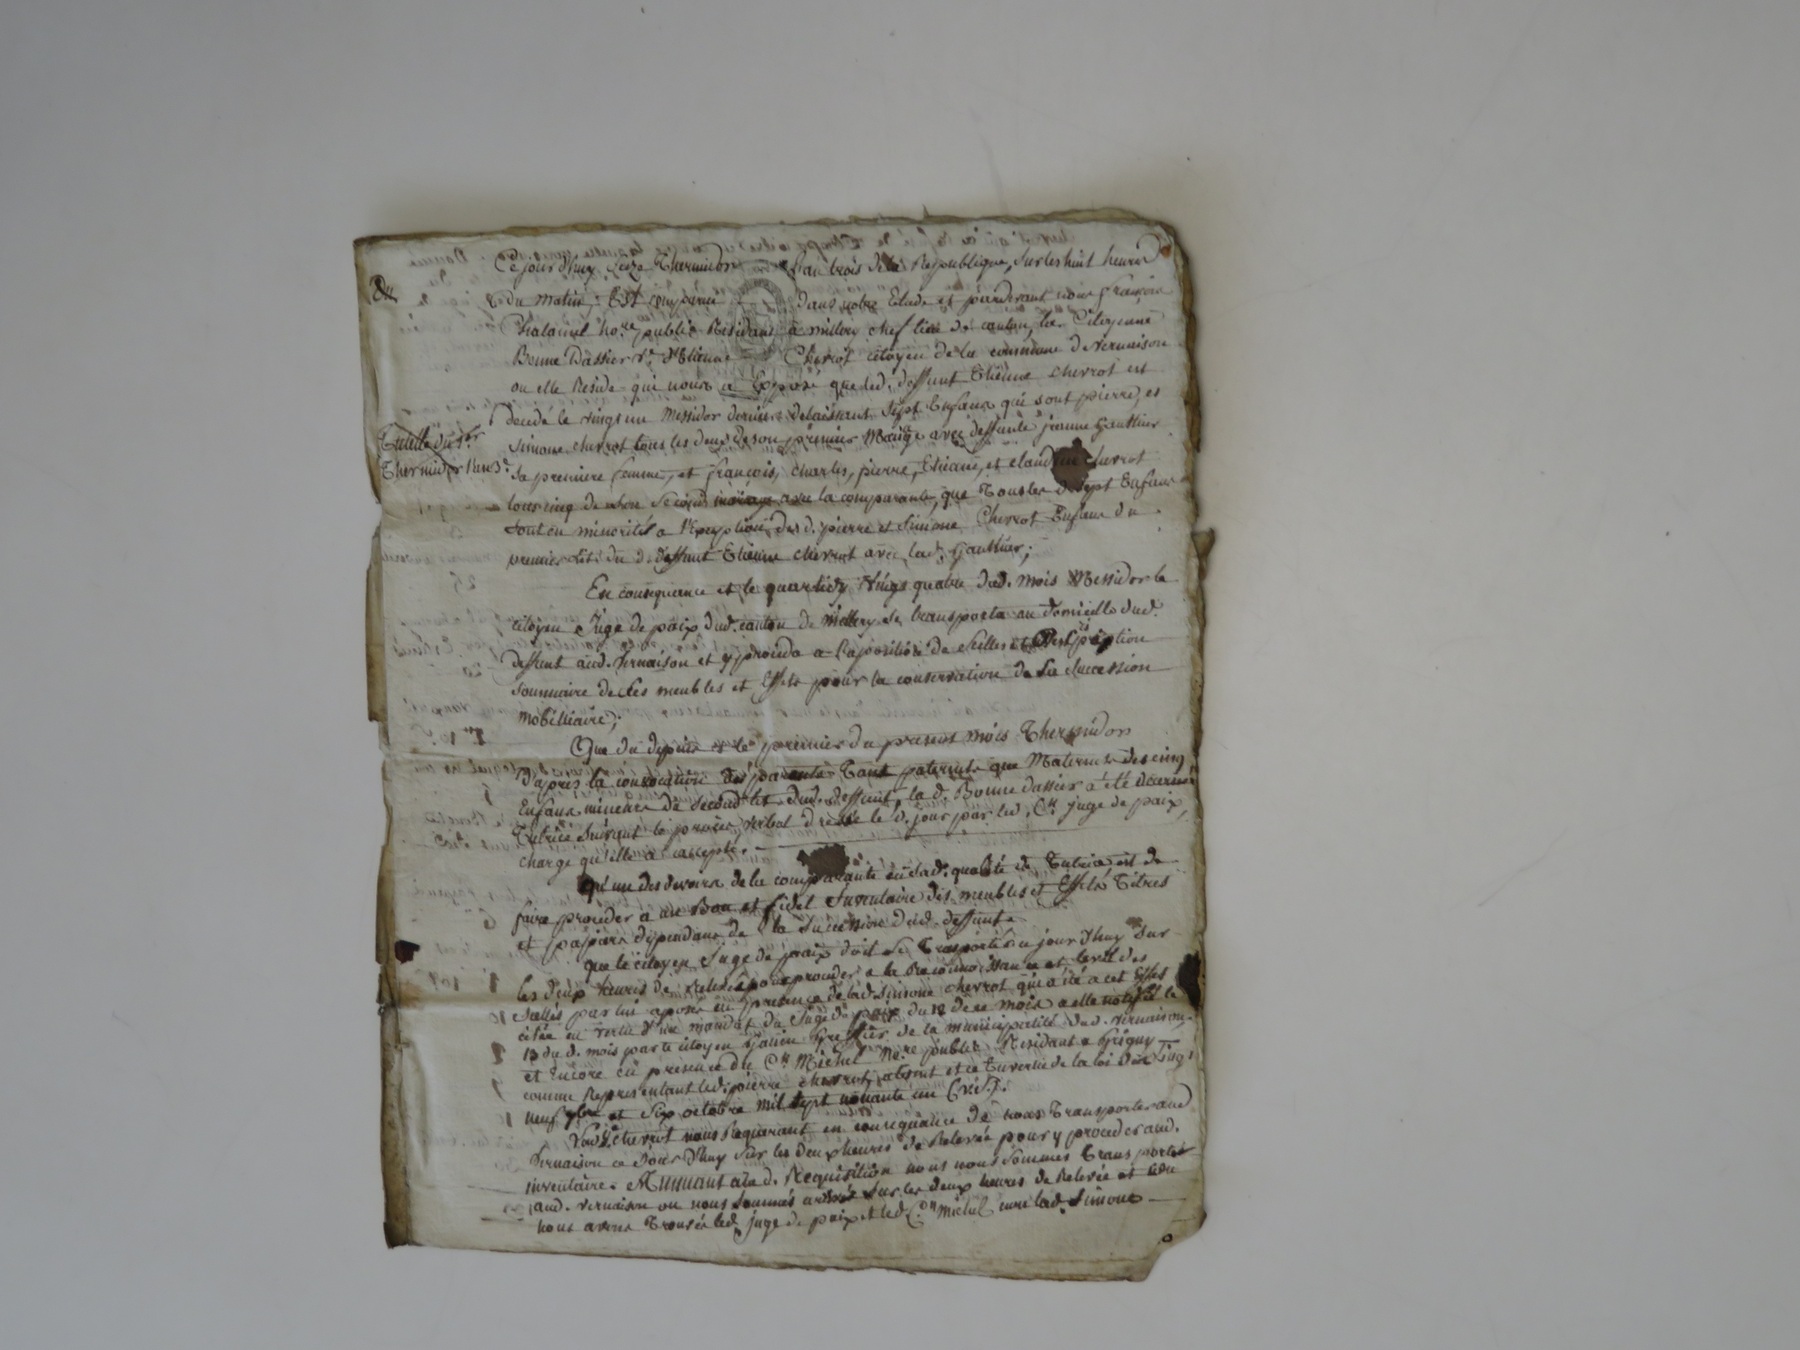 Du
Ce jourd'huy seize Thermidor l'an trois de la Republique, sur les huit heures
du matin, Est comparüe dans notre Etude et pardevant nous françois
no.re public Residant a millery chef lieu de canton, la Citoyenne
Bonne Dassier v.e d'Etienne Chevrot citoyen de la commune de vernaison
ou elle Reside qui nous a Exposé que led. deffunt Etienne chevrot est
decedé le vingt un Messidor dernier delaissant sept Enfans qui sont pierre, et
Simone chevrot tous les deux de son premier Mariage avec deffunte jeanne gauthier
sa premiere femme, et françois, charles, pierre, Etienne, et claudine chevrot
tous cinq de son second mariage avec la comparante, que Tous les d. sept Enfans
sont en minorités a l'Exeption des d. pierre et Simone Chevrot Enfans du
premier Lit du d. deffunt Etienne chevrot avec lad. gauthier;
Tutelle du 1.er
Thermidor l'an 3.e
En consequence et le quartidy vingt quatre dud. mois Messidor le
citoyen Juge de paix dud. canton de Millery se transporta au domicille dud.
deffunt aud. vernaison et y proceda a l'aposition de scelles et Description
sommaire de ses meubles et Effets pour la conservation de sa succession
mobilliaire;
Que du depuis et le premier du present mois Thermidor
d'apres la convocation des parents Tant paternels que Maternels des cinq
Enfans mineurs du second lit dud. deffunt, la d. Bonne dassier a été decernée
Tutrice suivant le procès verbal dressé le d. jour par led. C.en juge de paix,
charge qu'elle a accepté.
Qu'un des devoirs de la comparante en lad. qualité de Tutrice est de
faire proceder a un Bon et fidel Inventaire des meubles et Effets Titres
et papiers dependans de la succession dud. deffunt.
que le citoyen Juge de paix doit se Trasporter ce jourd'huy sur
les deux heures de relevée pour proceder a la Reconnoissance et levée des
scellés par lui aposés en presence de lad. Simone chevrot qui a été a cet Effet
citée en vertu d'un mandat du Juge de paix du 12 de ce mois a elle notifié le
13 du d. mois par le citoyen Greffier de la municipalité dud. vernaison,
et Encore en presence du C.en Michel No.re public Residant a Grigny
comme Representant led. pierre chevrot, absent et ce En vertu de la loi des vingt
neuf 7bre et six octobre mil sept nonante un
Lad. V.e chevrot nous Requerant en consequence de nous Transporter aud.
vernaison ce jourd'huy sur les deux heures de Relevée pour y proceder aud.
inventaire. Adhérant a la d. Requisition nous nous sommes Transportés
aud. vernaison ou nous sommes arrivés sur les deux heures de Relevée et
nous avons Trouvés led. juge de paix et led. C.en michel lad. Simone